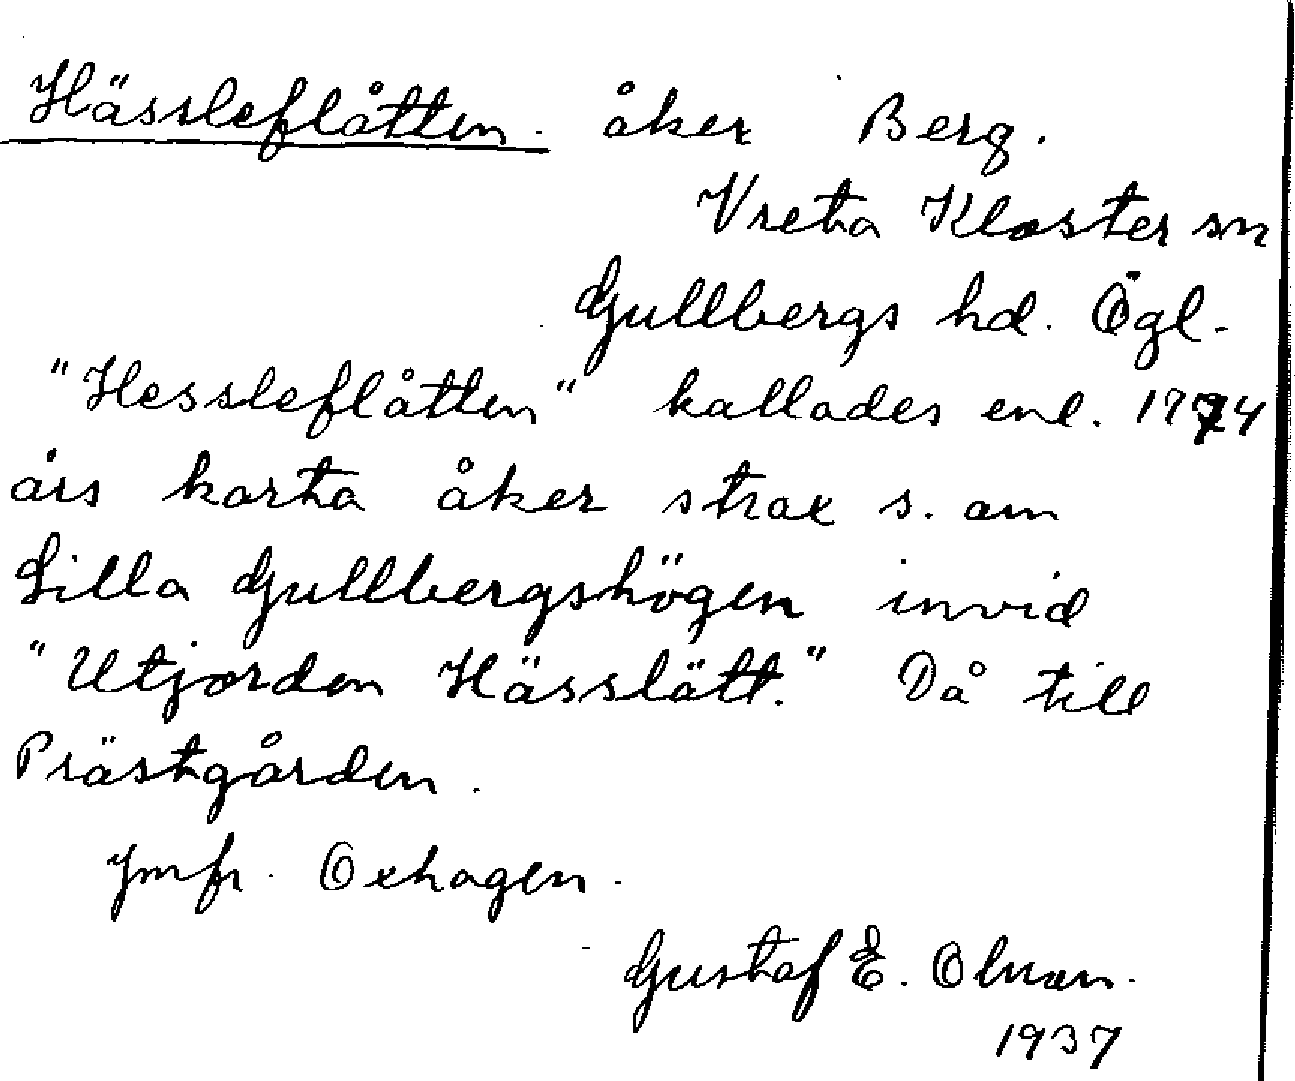 Hässleflåtten. åker Berg.
Vreta Kloster sn
Gullbergs hd. Ögl.
"Hessleflåtten" kallades enl. 1774
års karta åker strax s. om
Lilla Gullbergshögen invid
"Utjorden Hässlätt." Då till
Prästgården.
Jmfr. Oxhagen.
Gustaf E. Olsson.
1937